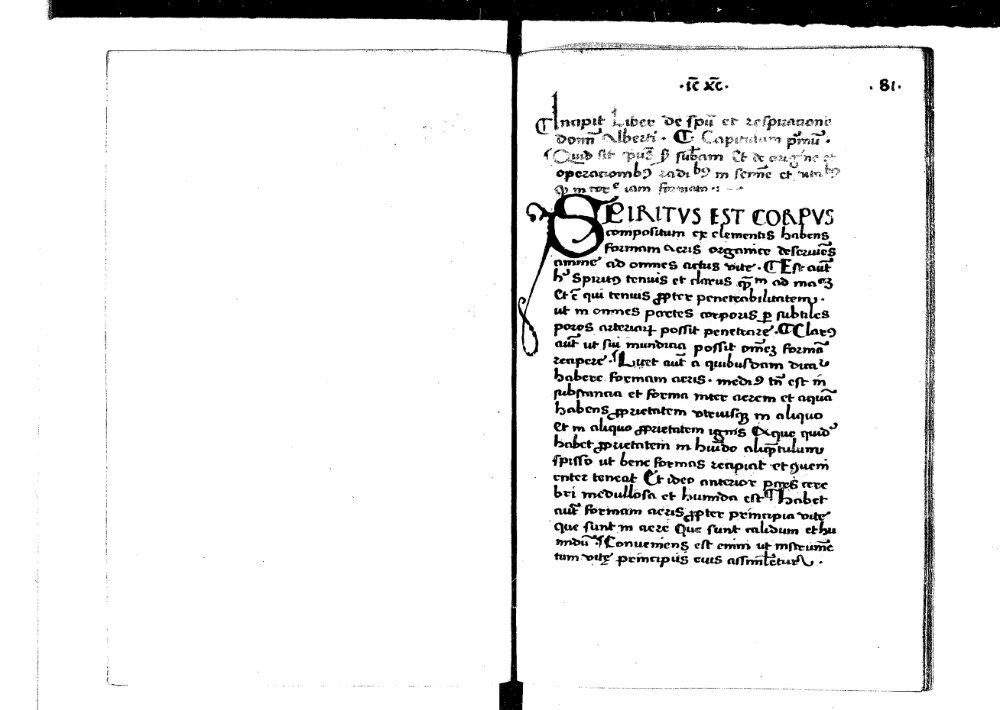 ·ic̄ xc̄·
. 81.
Incipit Liber de spū et respiratione
domī Alberti . ¶. Capitulum pⁱmū .
Quid sit et de origine et
operationibꝰ et
iam formato .
SPIRITVS EST CORPVS
compositum ex elementis habens
formam aeris organice deseruiēs
anime ad omnes actus vite . ¶ Est aut̄
spiritꝰ tenuis et clarus ad
Et ē qui tenuis ꝓpter penetrabilitatem .
ut in omnes partes corporis ꝑ subtiles
poros arteriaꝝ possit penetrare . ¶ Clarꝰ
aut̄ ut sui mundicia possit om̄eʒ formā
recipere . Licet aut̄ a quibusdam
habere formam aeris . mediꝰ tn̄ est in
substancia et forma inter aerem et aquā
habens ꝓprietatem utriusqʒ in aliquo
Et in aliquo ꝓprietatem ignis
habet ꝓprietatem in hūido
spisso ut bene formas recipiat et
enter teneat Et ideo anterior pars cere
bri medullosa et humida est Habet
aut̄ formam aeris ꝓpter principia vitę
que sunt in aere Que sunt calidum et hu
midū Conueniens est enim ut instrumē
tum vitę principiis eius assimiletur .